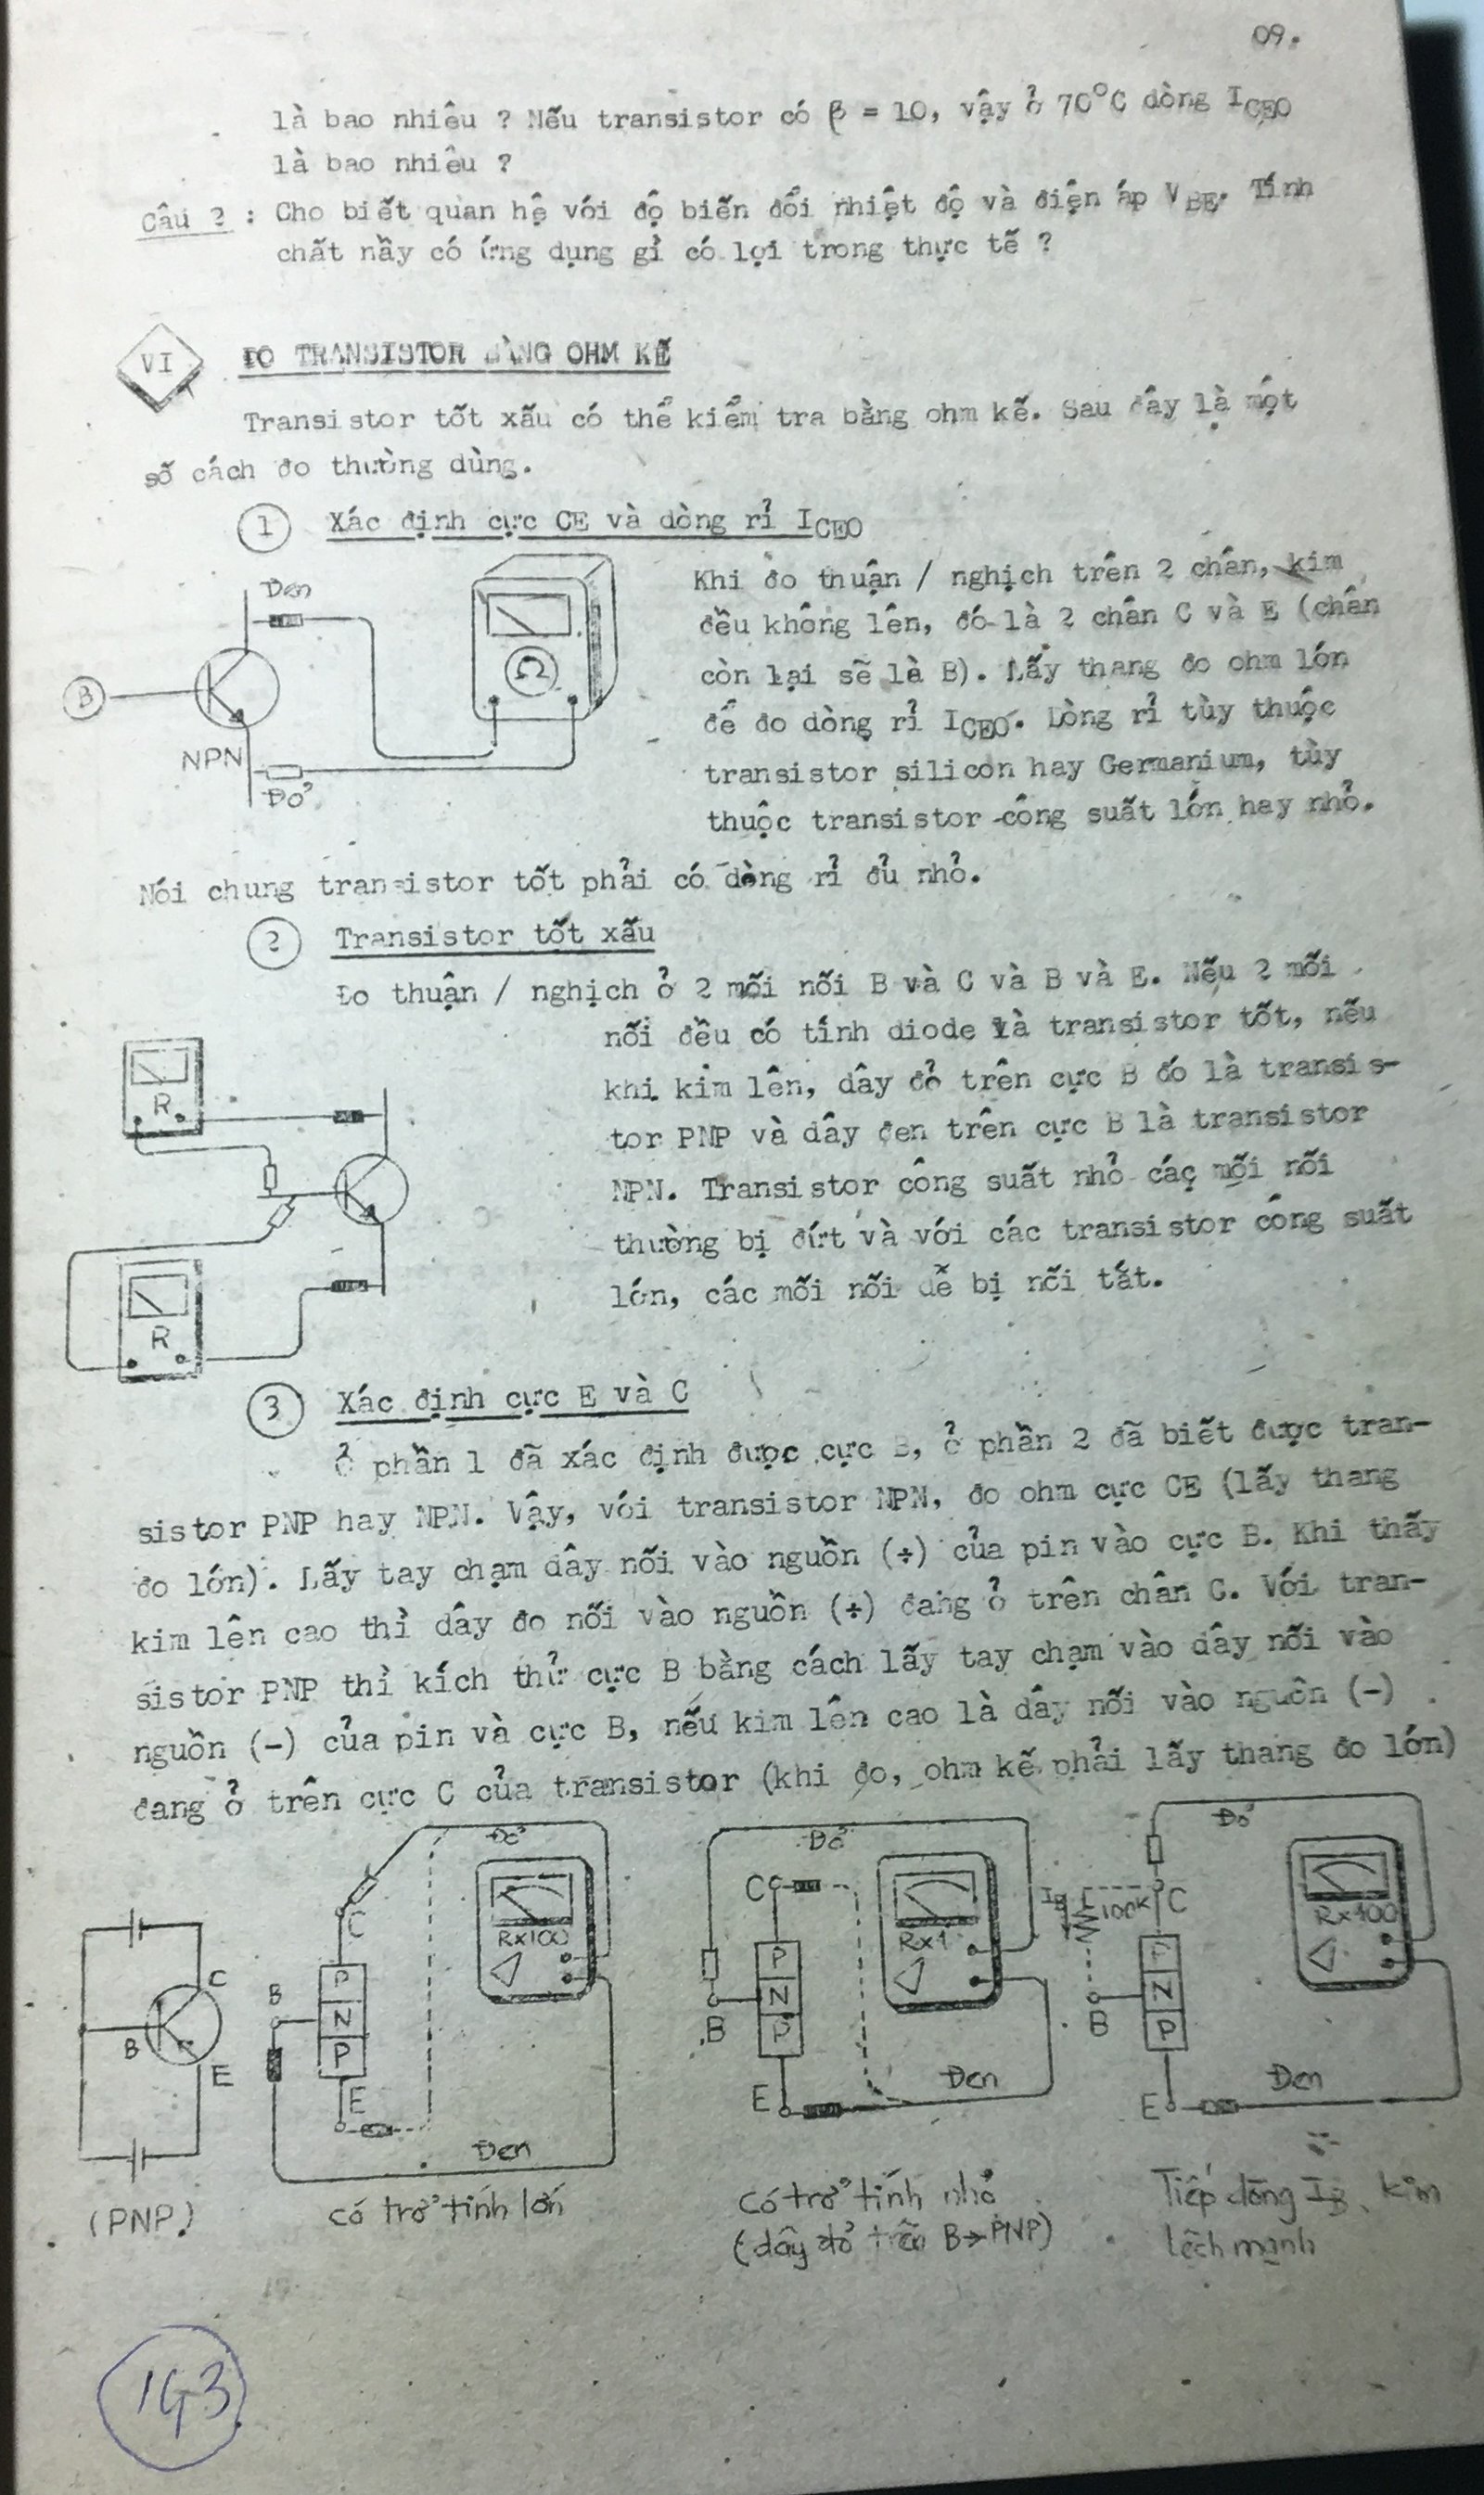 09.
là bao nhiêu ? Nếu transistor có β = 10, vậy ở 70°C dòng ICEO
là bao nhiêu ?
Câu 2 : Cho biết quan hệ với độ biến đổi nhiệt độ và điện áp VBE. Tính
chất nầy có ứng dụng gì có lợi trong thực tế ?
VI ĐO TRANSISTOR BẰNG OHM KẾ
Transistor tốt xấu có thể kiểm tra bằng ohm kế. Sau đây là một
số cách đo thường dùng.
1 Xác định cực CE và dòng rỉ ICEO
Khi đo thuận / nghịch trên 2 chân, kim
đều không lên, đó là 2 chân C và E (chân
còn lại sẽ là B). Lấy thang đo ohm lớn
để đo dòng rỉ ICEO. Dòng rỉ tùy thuộc
transistor silicon hay Germanium, tùy
thuộc transistor công suất lớn hay nhỏ.
Đen
B
Ω
NPN
Đỏ
Nói chung transistor tốt phải có dòng rỉ đủ nhỏ.
2 Transistor tốt xấu
Đo thuận / nghịch ở 2 mối nối B và C và B và E. Nếu 2 mối
nối đều có tính diode là transistor tốt, nếu
khi kim lên, dây đỏ trên cực B đó là transis-
tor PNP và dây đen trên cực B là transistor
NPN. Transistor công suất nhỏ các mối nối
thường bị đứt và với các transistor công suất
lớn, các mối nối dễ bị nối tắt.
R
R
3 Xác định cực E và C
Ở phần 1 đã xác định được cực B, ở phần 2 đã biết được tran-
sistor PNP hay NPN. Vậy, với transistor NPN, đo ohm cực CE (lấy thang
đo lớn). Lấy tay chạm dây nối vào nguồn (+) của pin vào cực B. Khi thấy
kim lên cao thì dây đo nối vào nguồn (+) đang ở trên chân C. Với tran-
sistor PNP thì kích thử cực B bằng cách lấy tay chạm vào dây nối vào
nguồn (-) của pin và cực B, nếu kim lên cao là dây nối vào nguồn (-)
đang ở trên cực C của transistor (khi đo, ohm kế phải lấy thang đo lớn)
C
B
E
(PNP)
Đỏ
C
Rx100
B
P
N
P
E
Đen
có trở tính lớn
Đỏ
C
Rx1
P
N
P
B
E
Đen
có trở tính nhỏ
(dây đỏ trên B→PNP)
Đỏ
IB
100K
C
Rx100
P
N
P
B
E
Đen
Tiếp dòng IB, kim
lệch mạnh
143